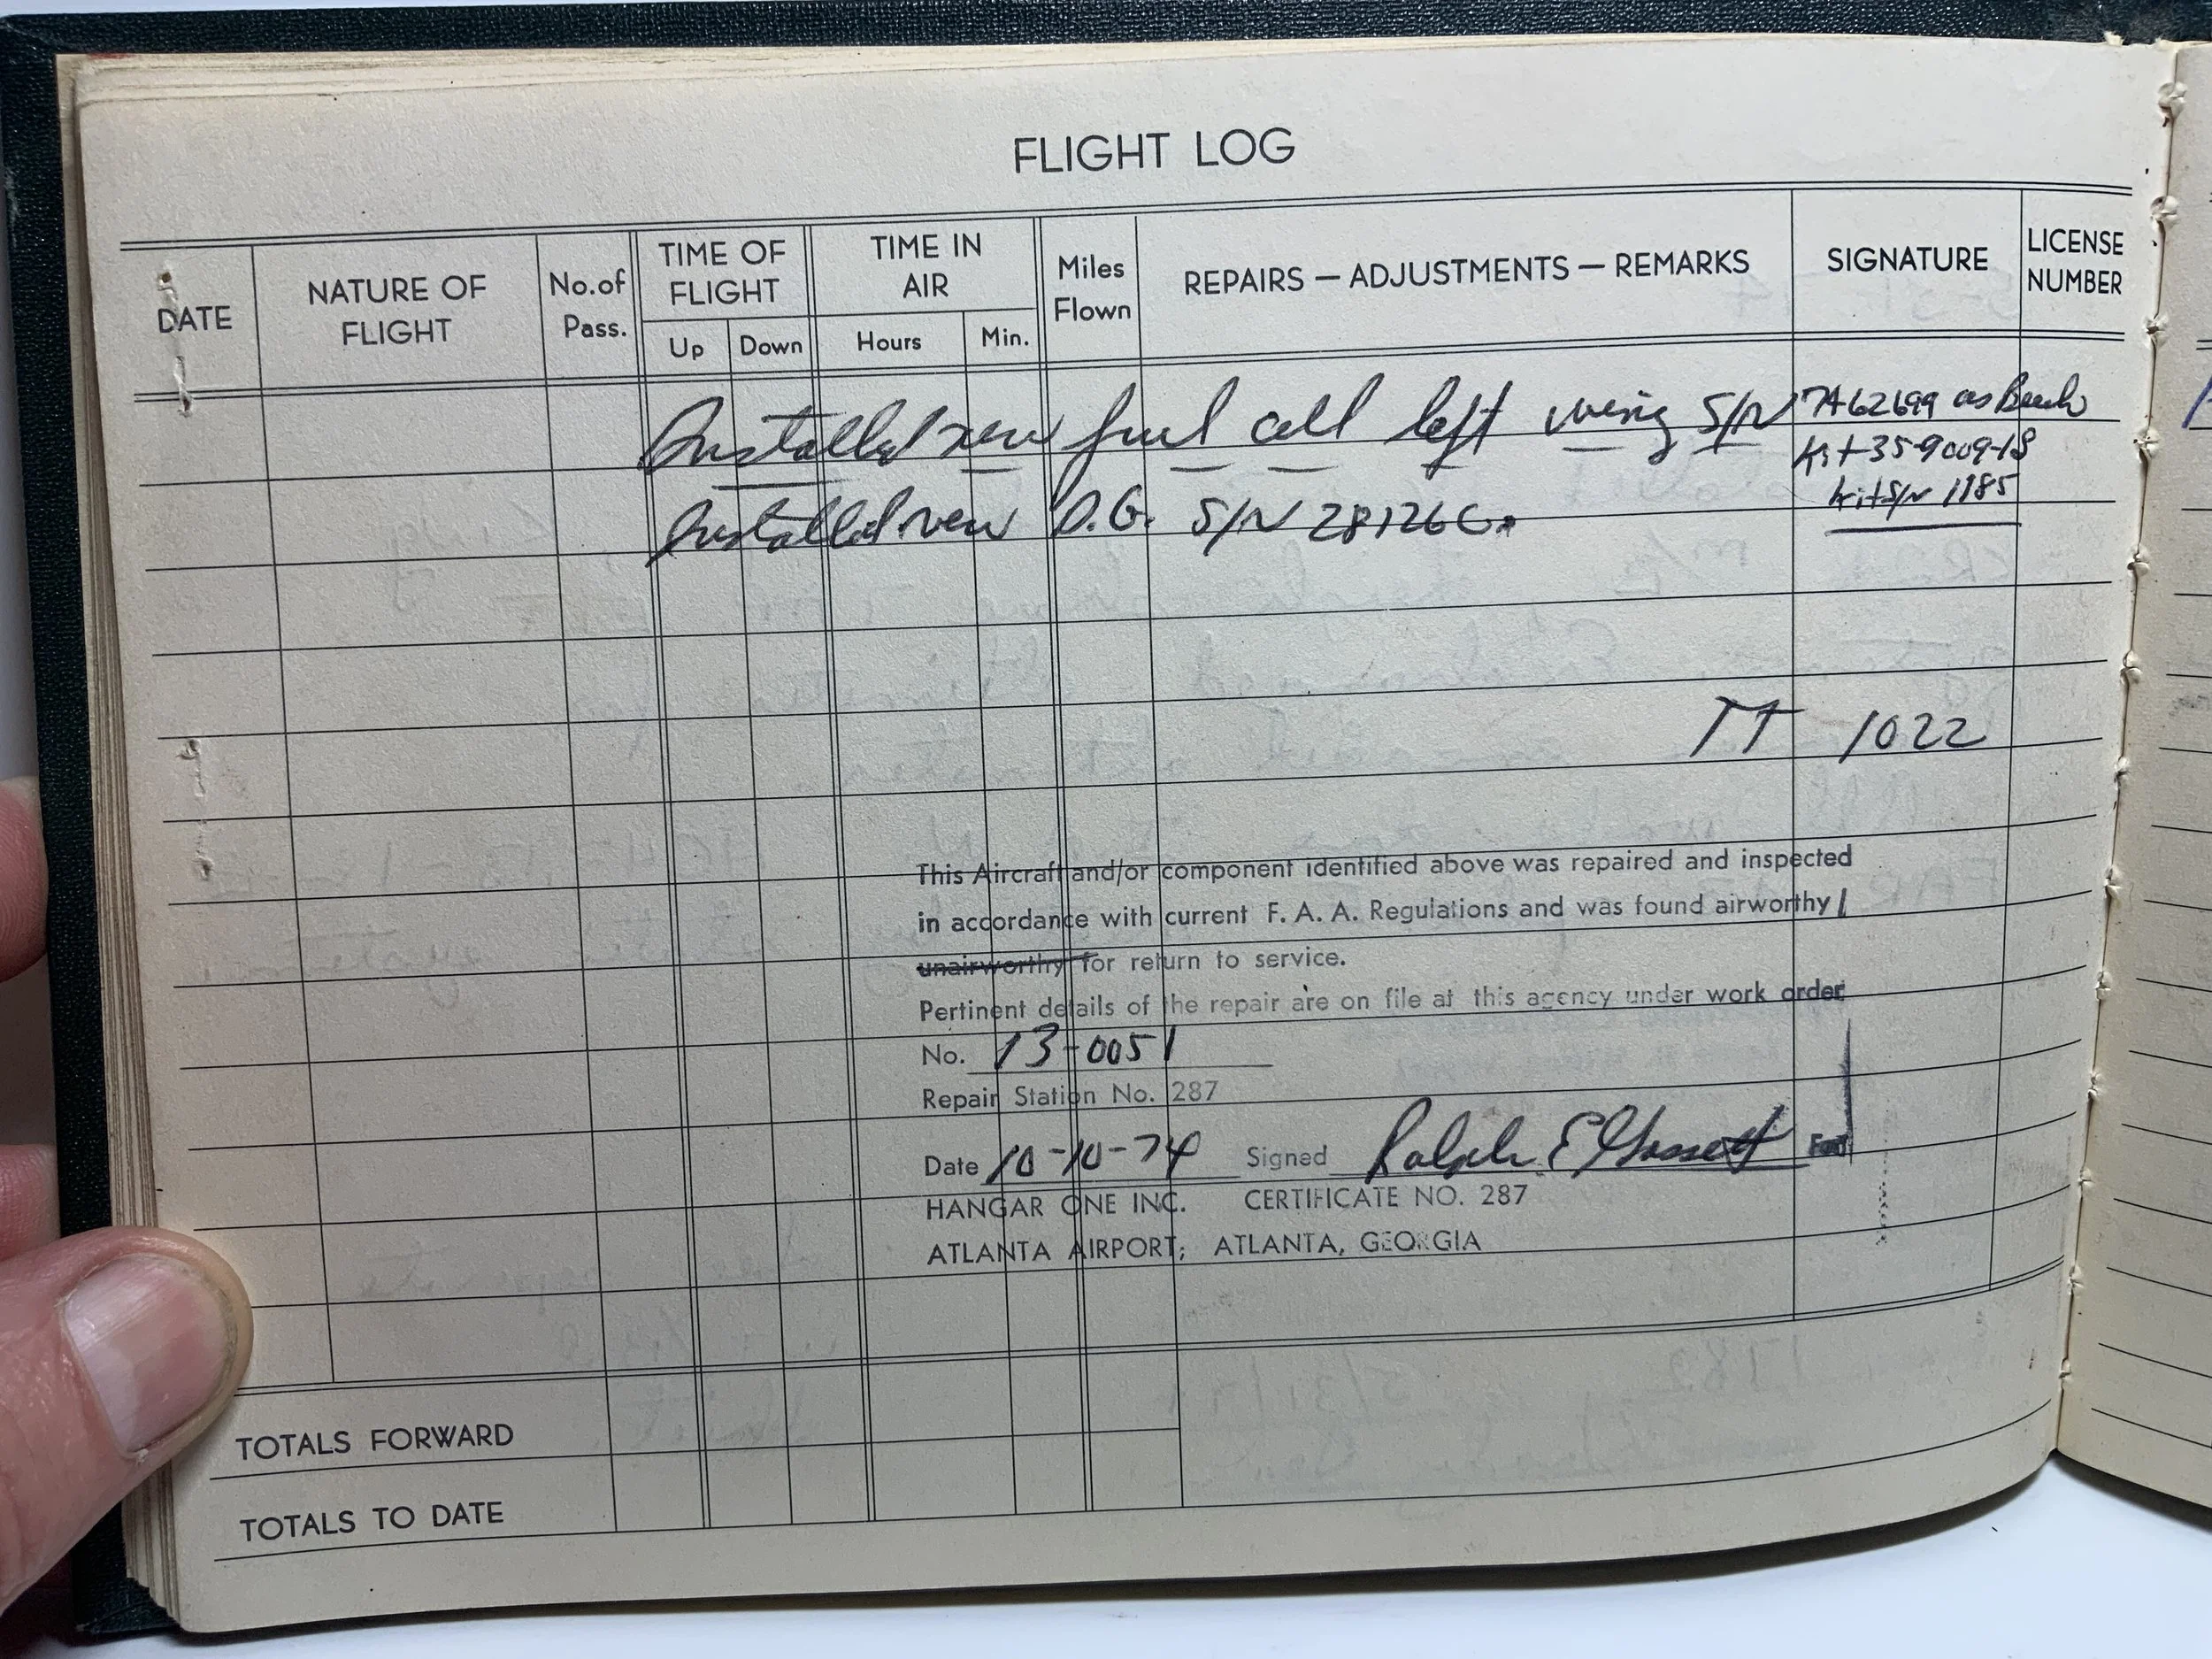 FLIGHT LOG
DATE
NATURE OF FLIGHT
No.of Pass.
TIME OF FLIGHT
Up
Down
TIME IN AIR
Hours
Min.
Miles Flown
REPAIRS — ADJUSTMENTS — REMARKS
SIGNATURE
LICENSE NUMBER
Installed new fuel cell left wing S/N 7A62699 as Beech
Kit 35-9009-18
kit S/N 1185
Installed new D.G. S/N 28126C.
TT 1022
This Aircraft and/or component identified above was repaired and inspected
in accordance with current F. A. A. Regulations and was found airworthy/
unairworthy for return to service.
Pertinent details of the repair are on file at this agency under work order
No. 13-0051
Repair Station No. 287
Date 10-10-74 Signed Ralph E Gossett For
HANGAR ONE INC. CERTIFICATE NO. 287
ATLANTA AIRPORT; ATLANTA, GEORGIA
TOTALS FORWARD
TOTALS TO DATE